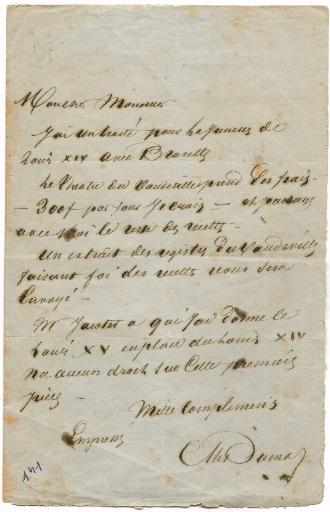 Mon cher Monsieur
J'ai un traité pour la Jeunesse de
Louis XIV avec Bruxelles
Le theatre du Vaudeville prend les frais
— 300f par jour je crois — et partage
avec moi le reste des recettes
Un extrait des registres du Vaudeville
faisant foi des recettes vous sera
Envoyé —
Mr Jacotet a qui j'ai donné le
Louis XV en place du Louis XIV
n'a aucun droit sur cette première
pièce —
Mille compliments
Empressés
Alex Dumas
141